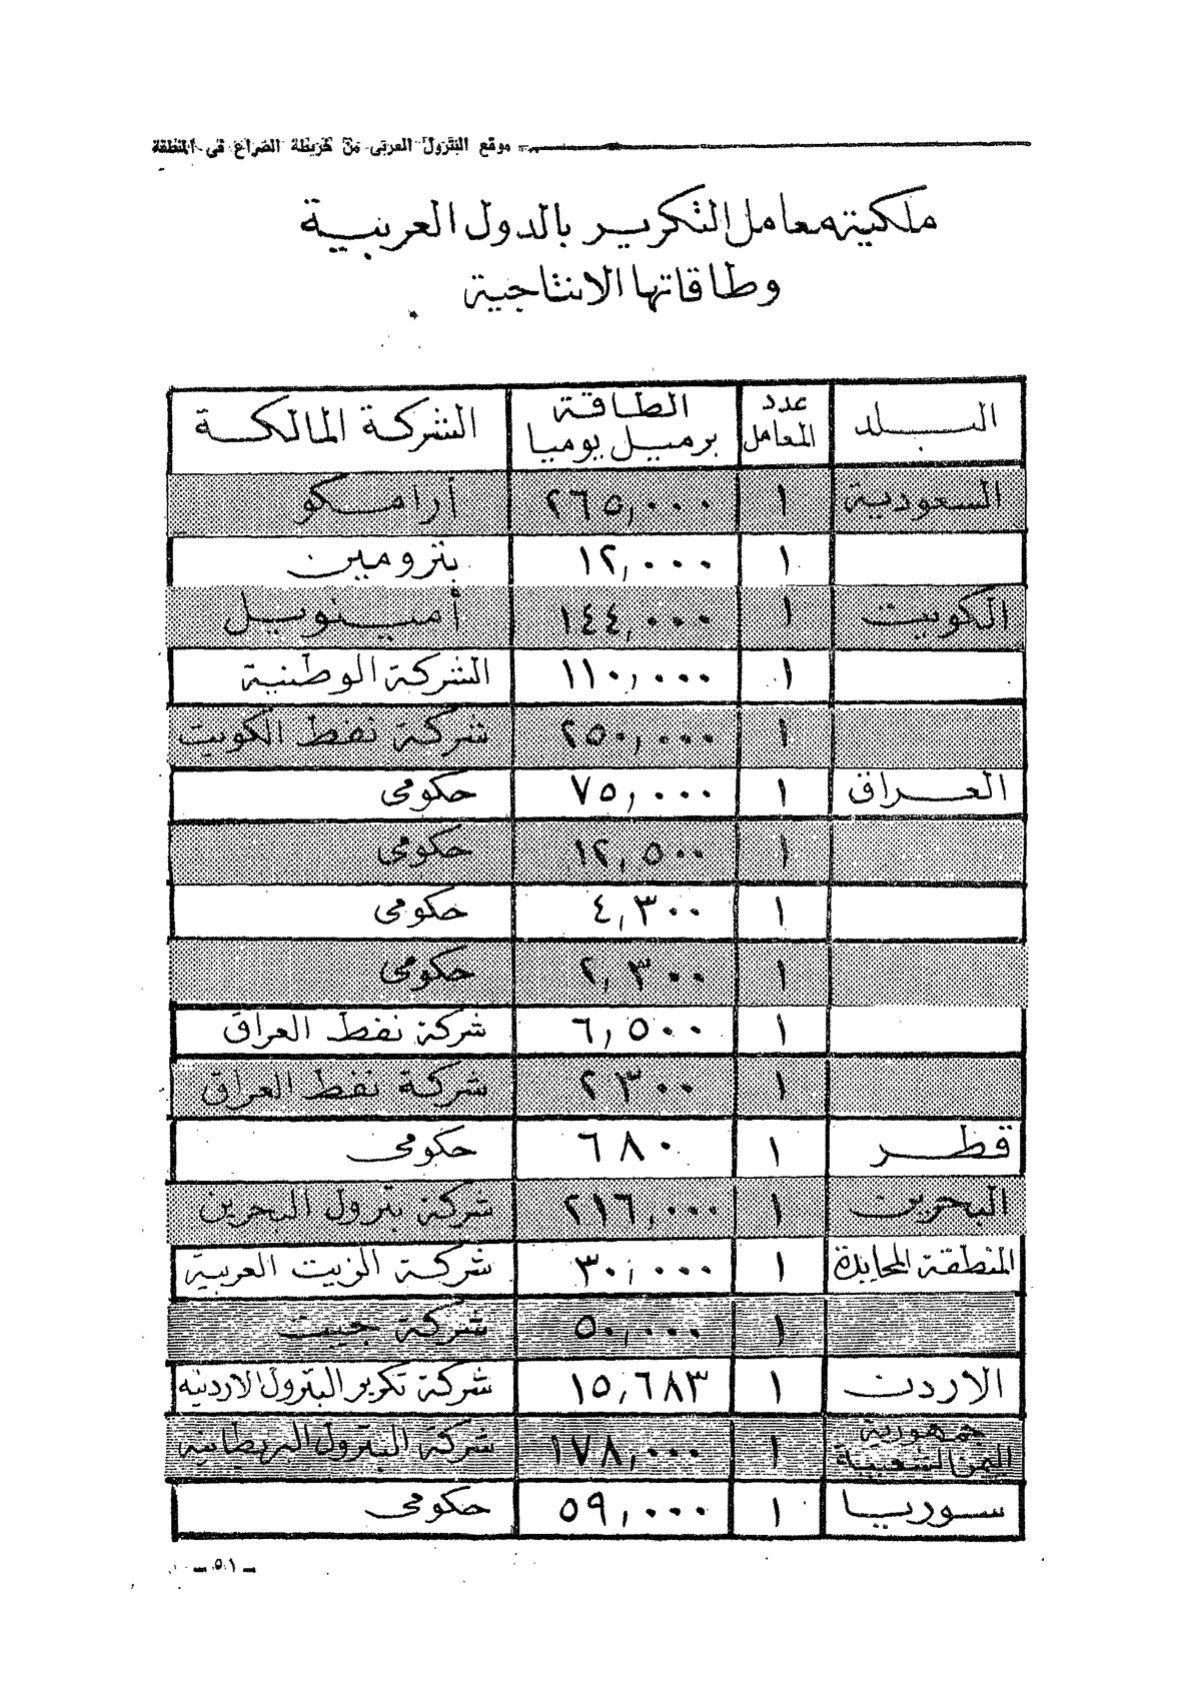 موقع البترول العربى من خريطة الصراع فى المنطقة
ملكية معامل التكرير بالدول العربية
وطاقاتها الانتاجية
البلد عدد المعامل الطاقة برميل يوميا الشركة المالكة
السعودية ١ ٢٦٥,٠٠٠ أرامكو
١ ١٢,٠٠٠ بترومين
الكويت ١ ١٤٤,٠٠٠ أمينويل
١ ١١٠,٠٠٠ الشركة الوطنية
١ ٢٥٠,٠٠٠ شركة نفط الكويت
العراق ١ ٧٥,٠٠٠ حكومى
١ ١٢,٥٠٠ حكومى
١ ٤,٣٠٠ حكومى
١ ٢,٣٠٠ حكومى
١ ٦,٥٠٠ شركة نفط العراق
١ ٢٣٠٠ شركة نفط العراق
قطر ١ ٦٨٠ حكومى
البحرين ١ ٢١٦,٠٠٠ شركة بترول البحرين
المنطقة المحايدة ١ ٣٠,٠٠٠ شركة الزيت العربية
١ ٥٠,٠٠٠ شركة جيت
الاردن ١ ١٥,٦٨٣ شركة تكرير البترول الاردنيه
جمهورية اليمن الشعبية ١ ١٧٨,٠٠٠ شركة البترول البريطانيه
سوريا ١ ٥٩,٠٠٠ حكومى
ـ ٥١ ـ